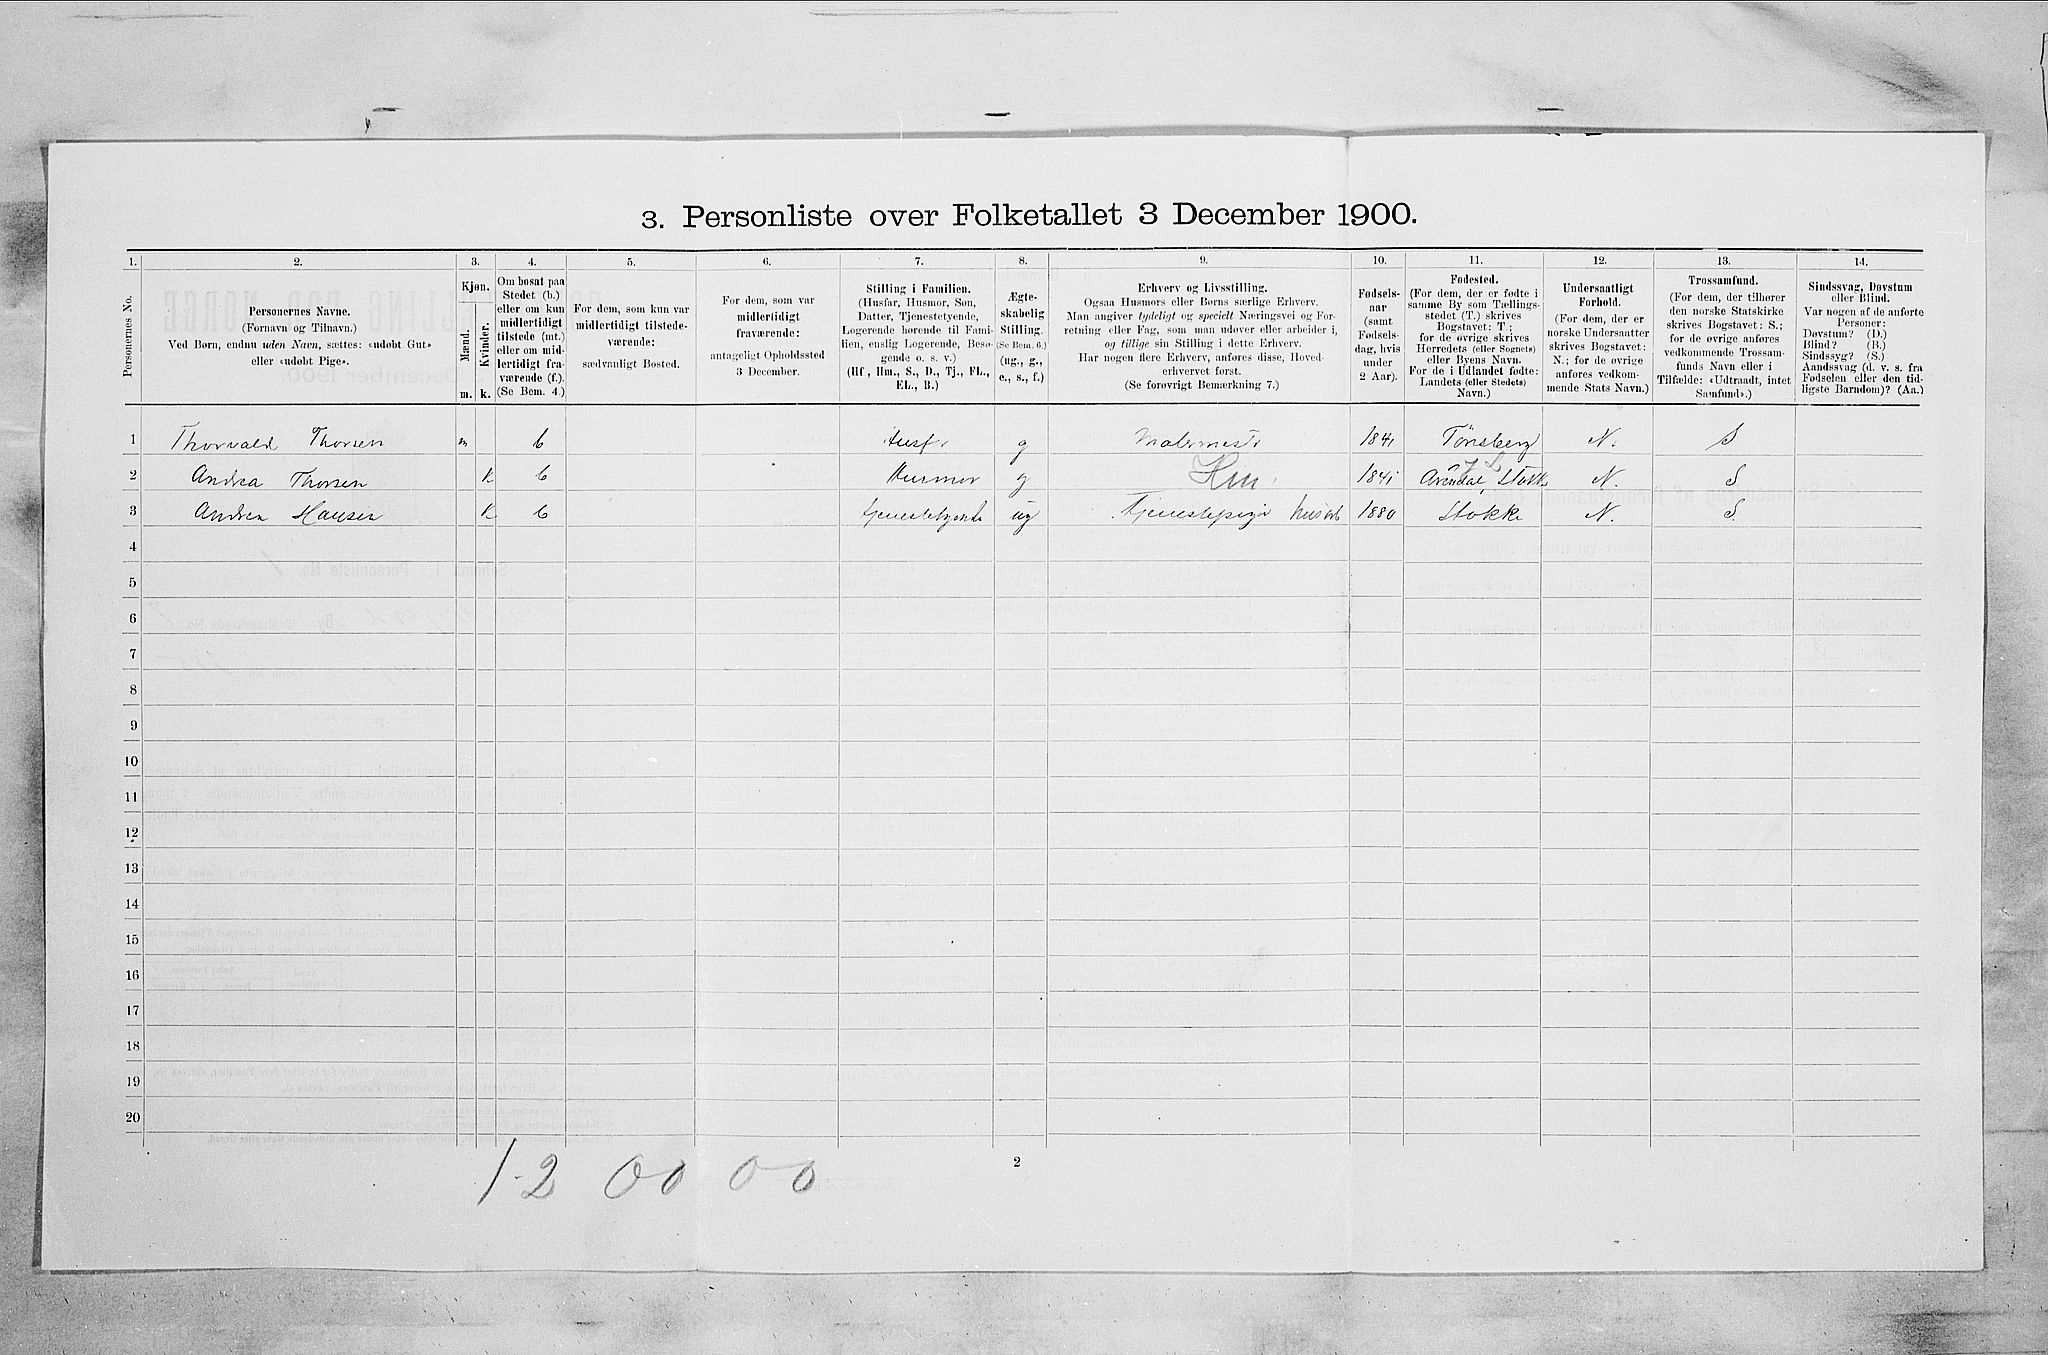 3. Personliste over Folketallet 3 December 1900.
1. 2. 3. 4. 5. 6. 7. 8. 9. 10. 11. 12. 13. 14.
Personernes No.
Personernes Navne.
(Fornavn og Tilnavn.)
Ved Børn, endnu uden Navn, sættes: «udøbt Gut»
eller «udøbt Pige».
Kjøn.
Mænd.
Kvinder.
m. k.
Om bosat paa
Stedet (b.)
eller om kun
midlertidigt
tilstede (mt.)
eller om mid-
lertidigt fra-
værende (f.).
(Se Bem. 4.)
For dem, som kun var
midlertidigt tilstede-
værende:
sædvanligt Bosted.
For dem, som var
midlertidigt
fraværende:
antageligt Opholdssted
3 December.
Stilling i Familien.
(Husfar, Husmor, Søn,
Datter, Tjenestetyende,
Logerende hørende til Fami-
lien, enslig Logerende, Besø-
gende o. s. v.)
(Hf., Hm., S., D., Tj., FL.,
EL., B.)
Ægte-
skabelig
Stilling.
(Se Bem. 6.)
(ug., g.,
e., s., f.)
Erhverv og Livsstilling.
Ogsaa Husmors eller Børns særlige Erhverv.
Man angiver tydeligt og specielt Næringsvei og For-
retning eller Fag, som man udøver eller arbeider i,
og tillige sin Stilling i dette Erhverv.
Har nogen flere Erhverv, anføres disse, Hoved-
erhvervet først.
(Se forøvrigt Bemærkning 7.)
Fødsels-
aar
(samt
Fødsels-
dag, hvis
under
2 Aar).
Fødested.
(For dem, der er fødte i
samme By som Tællings-
stedet (T.) skrives
Bogstavet: T;
for de øvrige skrives
Herredets (eller Sognets)
eller Byens Navn.
For de i Udlandet fødte:
Landets (eller Stedets)
Navn.)
Undersaatligt
Forhold.
(For dem, der er
norske Undersaatter
skrives Bogstavet:
N.; for de øvrige
anføres vedkom-
mende Stats Navn.)
Trossamfund.
(For dem, der tilhører
den norske Statskirke
skrives Bogstavet: S.;
for de øvrige anføres
vedkommende Trossam-
funds Navn eller i
Tilfælde: «Udtraadt, intet
Samfund».)
Sindssvag, Døvstum
eller Blind.
Var nogen af de anførte
Personer:
Døvstum? (D.)
Blind? (B.)
Sindssyg? (S.)
Aandssvag (d. v. s. fra
Fødselen eller den tid-
ligste Barndom)? (Aa.)
1 Thorvald Thorsen m b Husfar g Malermester 1841 Tönsberg N. S
2 Andrea Thorsen K b Husmor g Hm. 1841 Stokke N. S
3 Andrea Hansen K b tjenestetyende ug Tjenestepige 1880 Stokke N. S.
4
5
6
7
8
9
10
11
12
13
14
15
16
17
18
19
20
1-2 00 00
2